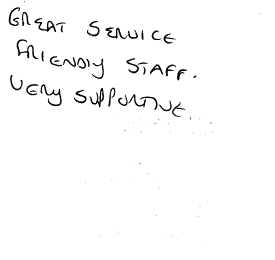 GREAT SERVICE
FRIENDLY STAFF.
VERY SUPPORTIVE